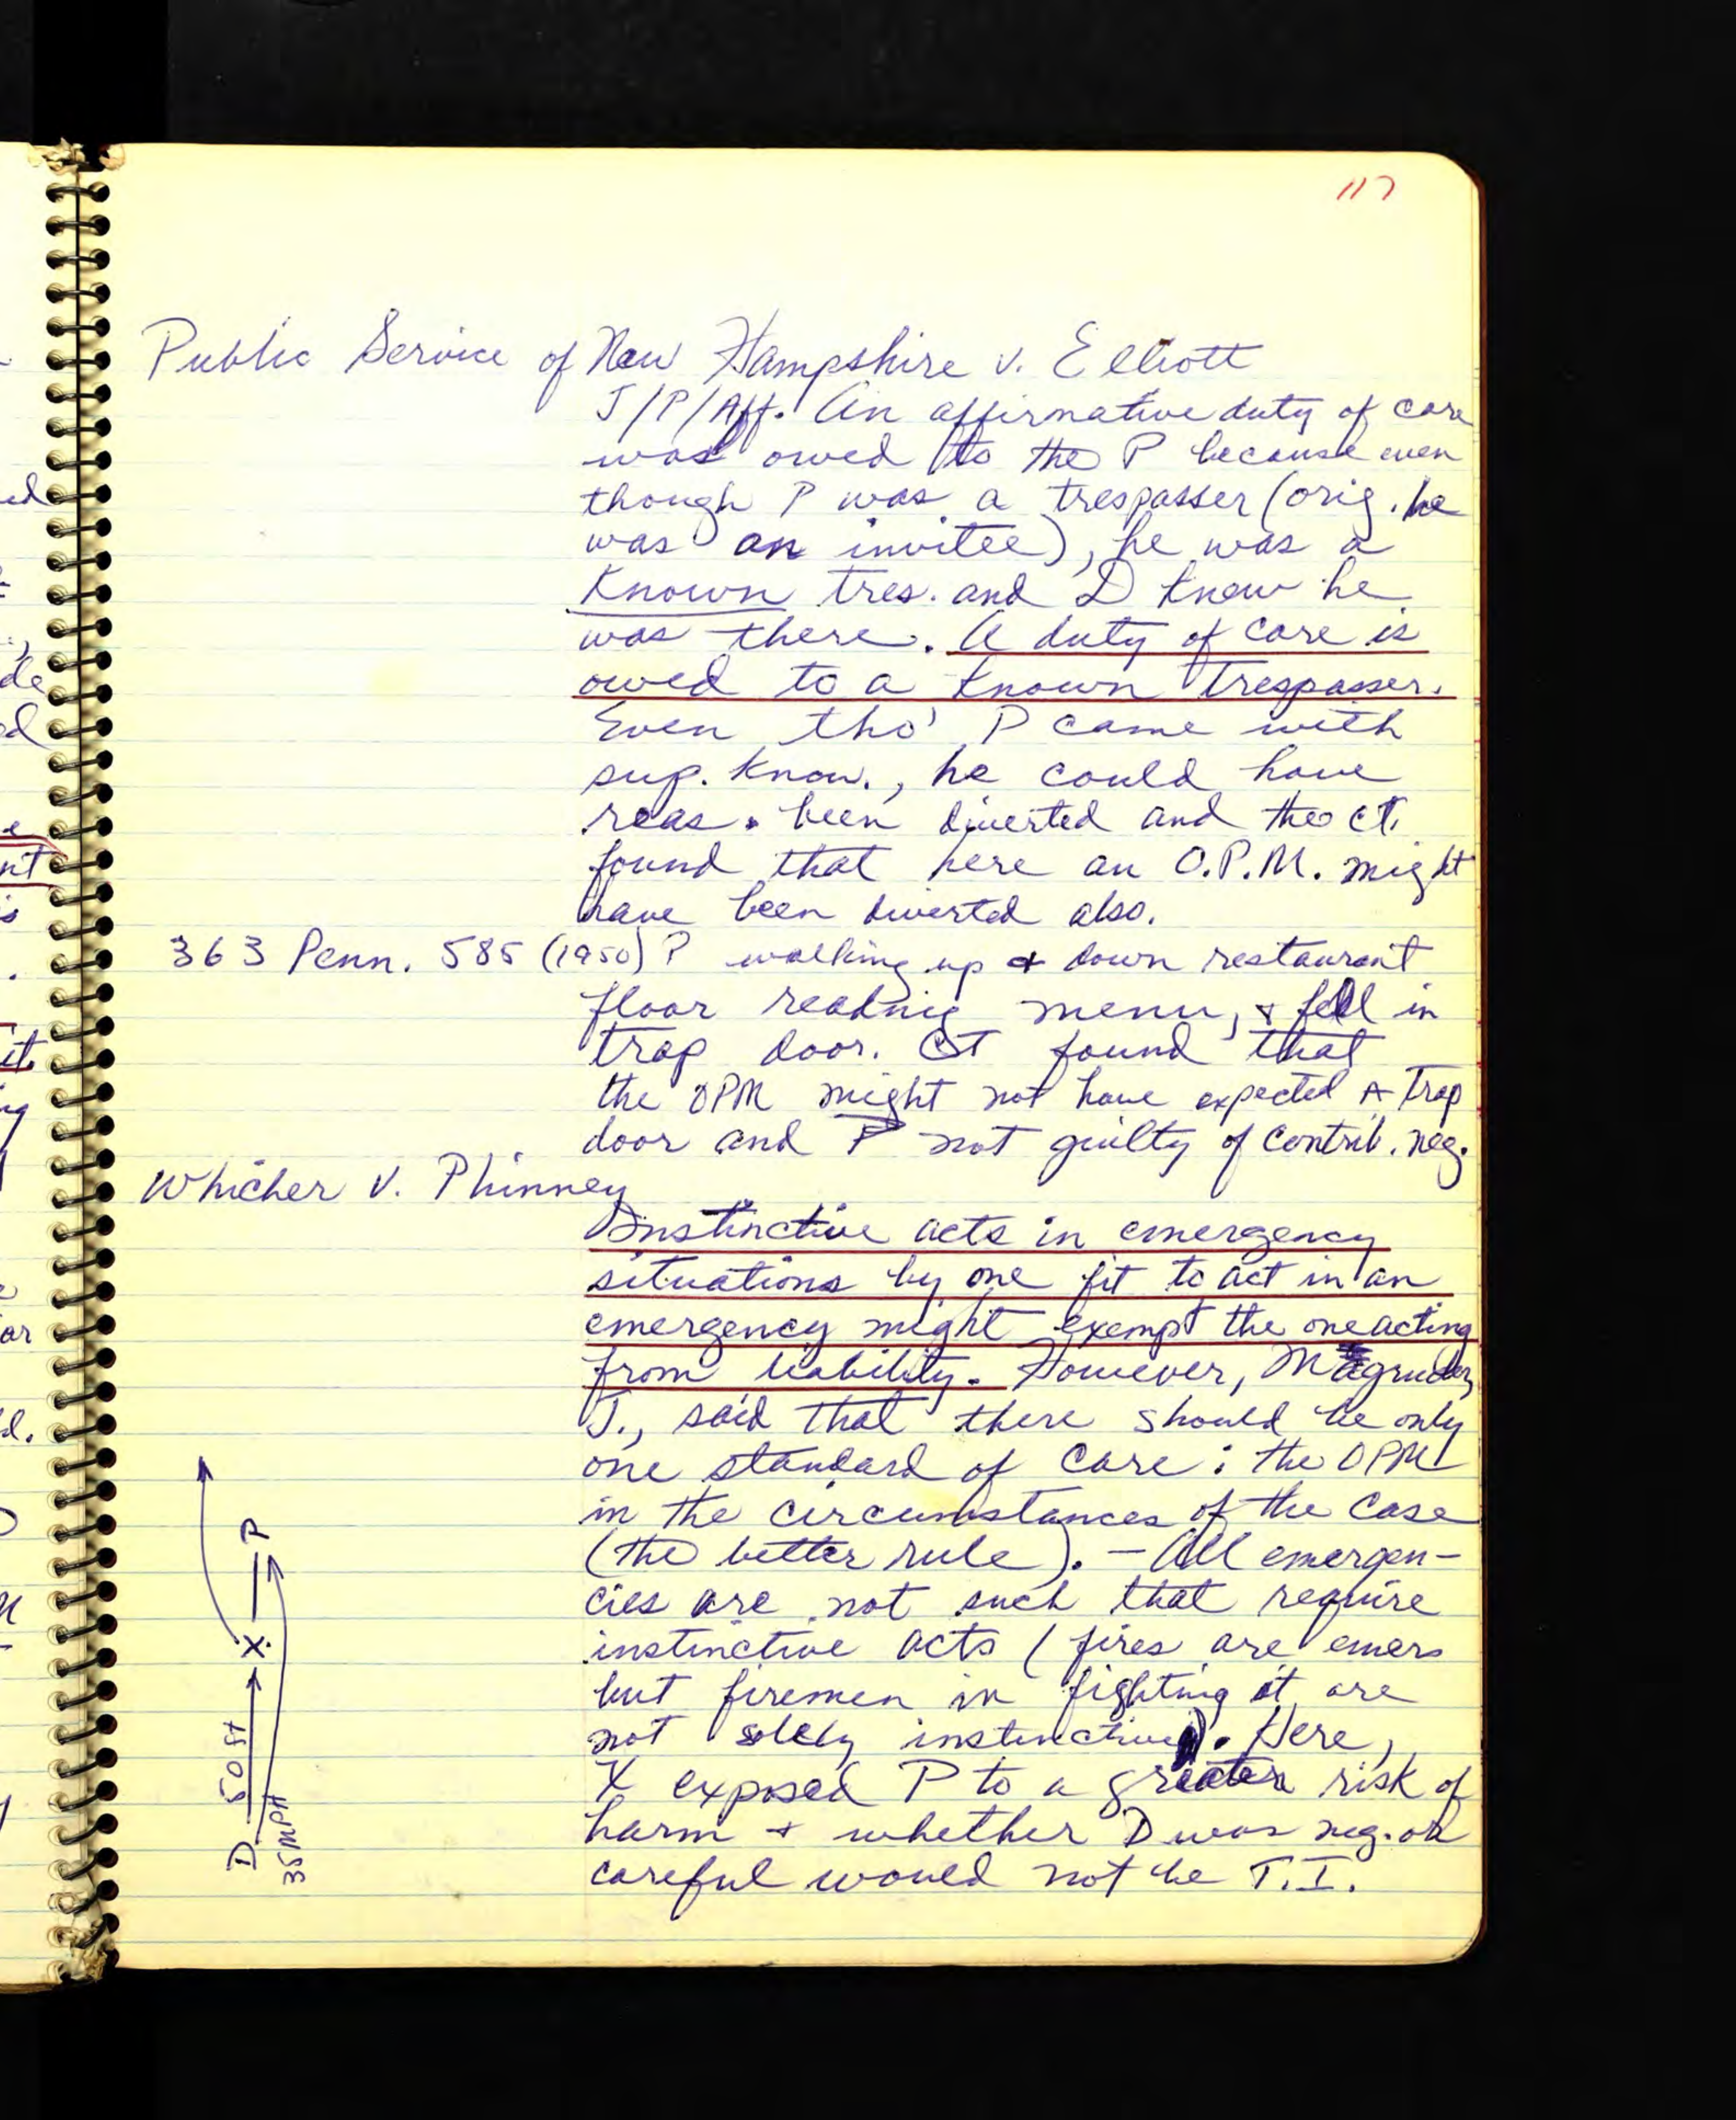 117
Public Service of New Hampshire v. Elliott
J/P/Aff. An affirmative duty of care
was owed to the P because even
though P was a trespasser (orig. he
was an invitee), he was a
known tres. and D knew he
was there. A duty of care is
owed to a known trespasser.
Even tho' P came with
sup. know., he could have
reas. been diverted and the ct.
found that here an O.P.M. might
have been diverted also.
363 Penn. 585 (1950) P walking up & down restaurant
floor reading menu, & fell in
trap door. CT found that
the OPM might not have expected A Trap
door and P not guilty of contrib. neg.
Whicher v. Phinney
Instinctive acts in emergency
situations by one fit to act in an
emergency might exempt the one acting
from liability. However, Magruder,
J., said that there should be only
one standard of care: the OPM
in the circumstances of the case
(the better rule). - All emergen-
cies are not such that require
instinctive acts (fires are emers
but firemen in fighting it are
not solely instinctive). Here,
X exposed P to a greater risk of
harm & whether D was neg. or
careful would not be T.I.
D 50 ft X P
35 MPH